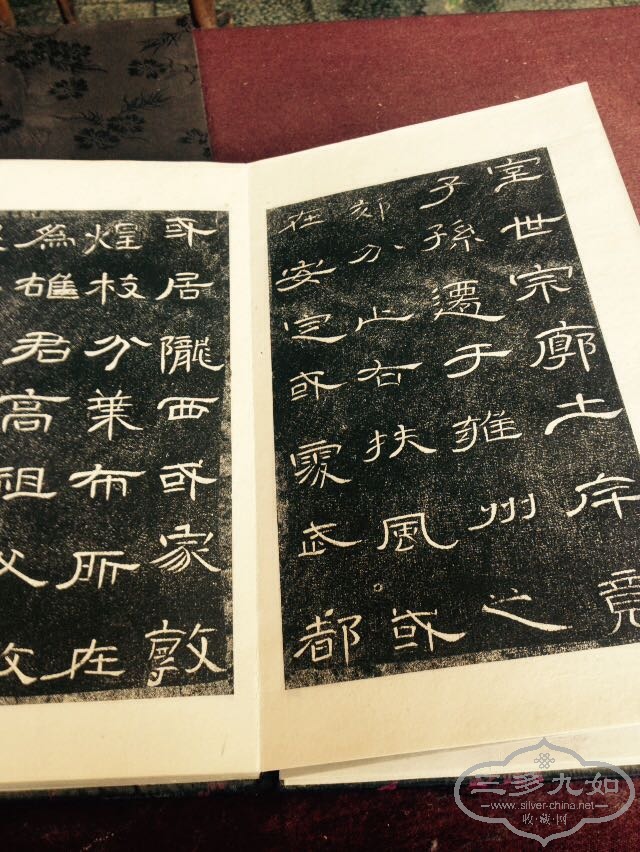 室世宗廓土斥竟
子孫遷于雍州之
郊分止右扶風或
在安定或處武都
或居隴西或家敦
煌枝分葉布所在
為雄君高祖父
三多九如
www.silver-china.net
收·藏·网